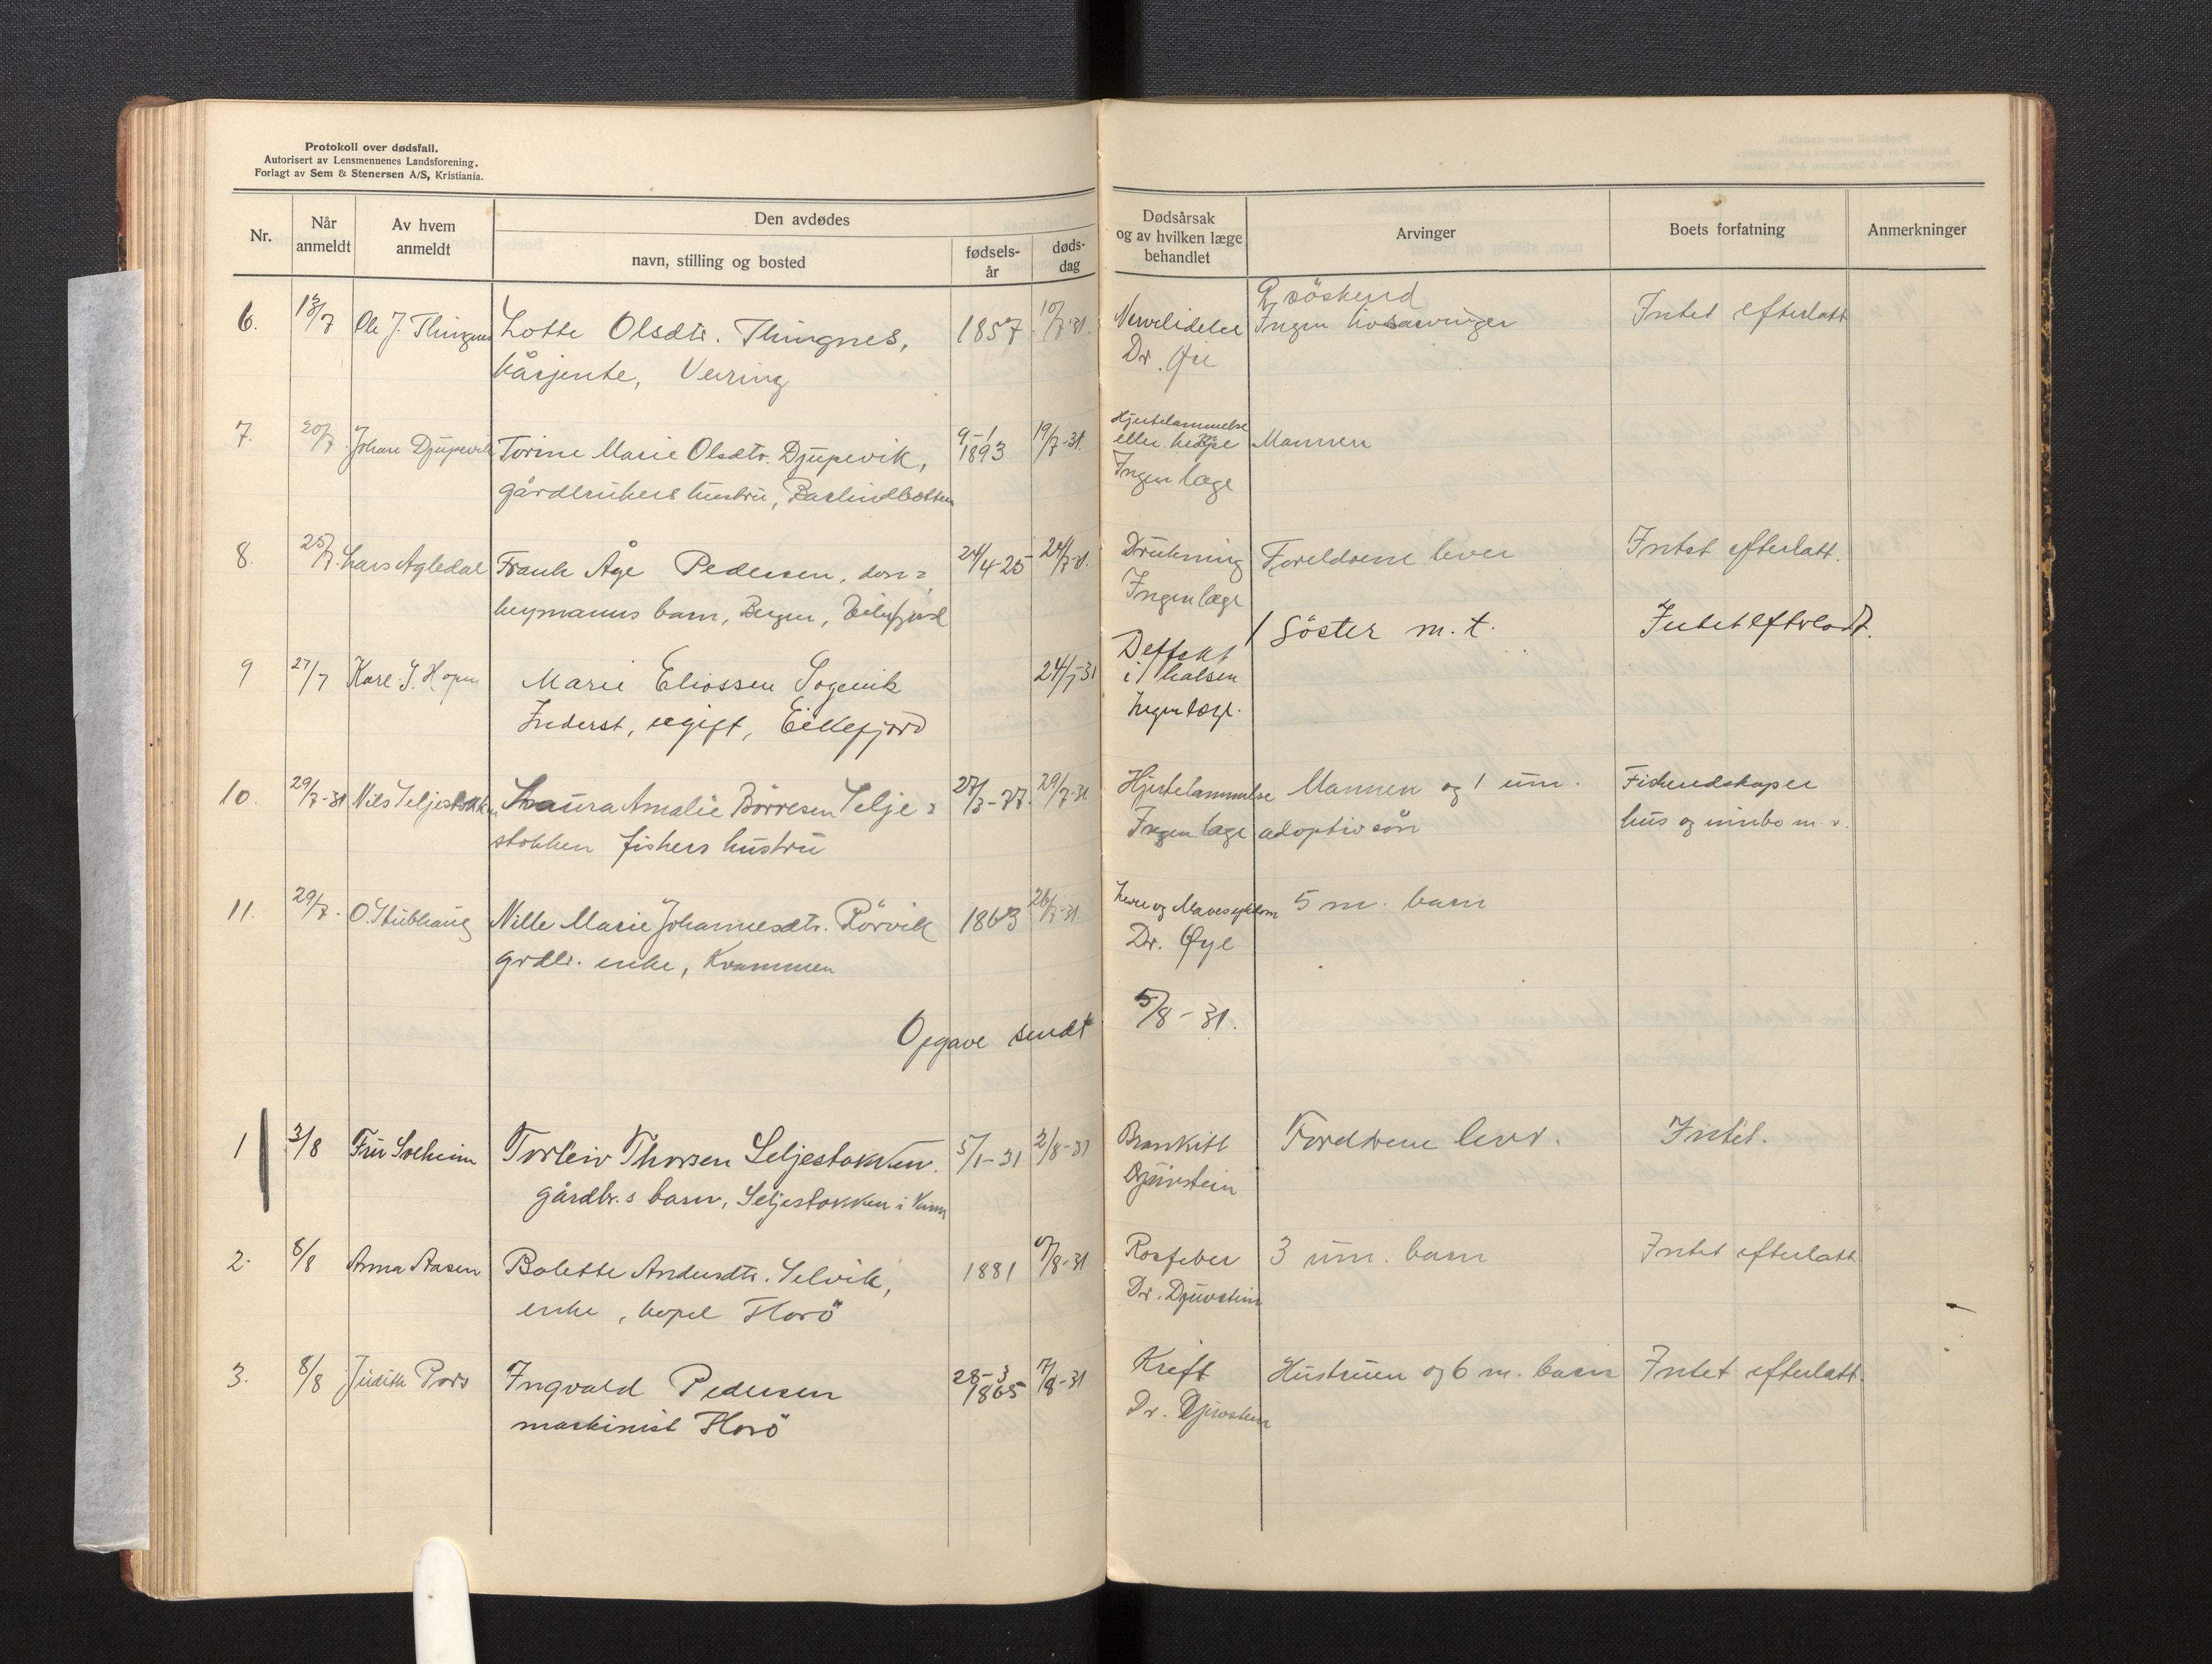 Protokoll over dødsfall.
Autorisert av Lensmennenes Landsforening.
Forlagt av Sem & Stenersen A/S, Kristiania.
Nr.
Når anmeldt
Av hvem anmeldt
Den avdødes
navn, stilling og bosted
fødsels-år
døds-dag
Dødsårsak og av hvilken læge behandlet
Arvinger
Boets forfatning
Anmerkninger
6. 13/7 Ole J. Thingnes Lotte Olsdtr. Thingnes, 1857 10/7-31. Nervelidelse Ingen livsarvinger Intet efterlatt
søskend
kårjente, Veiring Dr. Øie
7. 20/7. Johan Djupevik Torine Marie Olsdtr. Djupevik, 9-1 1893 19/7-31. Hjertelammelse eller Mannen
gårdbrukers hustru, Barlindbotten Ingen læge
8. 25/7. Lars Agledal Frank Åge Pedersen, don= 24/4-25 24/7-31. Drukning Foreldrene lever Intet efterlatt.
keymanns barn, Bergen, Eikefjord Ingen læge
9 27/7 Karl J. Hopen Marie Eliassen Sognik 24/7-31 Deffekt i halsen 1 Søster m. t. Intet efterladt.
Inderst, ugift, Eikefjord Ingen læge.
10. 29/7-31 Nils Seljestokken Laura Amalie Börresen Selje= 27/3-77. 29/7-31 Hjertelammelse Mannen og 1 um. Fiskeredskaper
stokken fishers hustru Ingen læge adoptivsøn hus og innbo m. v.
11. 29/7. O. Stubhaug Nille Marie Johannesdtr. Rörvik 1863 26/7-31. Lever og Mavesykdom 5 m. barn
grdbr. enke, Kvammen Dr. Øye
Opgave sendt 5/8-31.
1 3/8 Fru Solheim Torleiv Thorsen Seljestokken. 5/1-31 2/8-31 Bronkitt Foreldrene lever. Intet.
gårdbr.s barn, Seljestokken i Kinn Djuvstein
2. 8/8 Anna Aasen Bolette Andersdtr. Selvik, 1881 7/8-31 Rosfeber 3 um. barn Intet efterlatt
enke, Florö Dr. Djuvstein
3. 8/8 Judith Pers Ingvald Pedersen 28-3 1865 7/8-31 Kreft Hustruen og 6 m. barn Intet efterlatt.
maskinist Florö Dr. Djuvstein